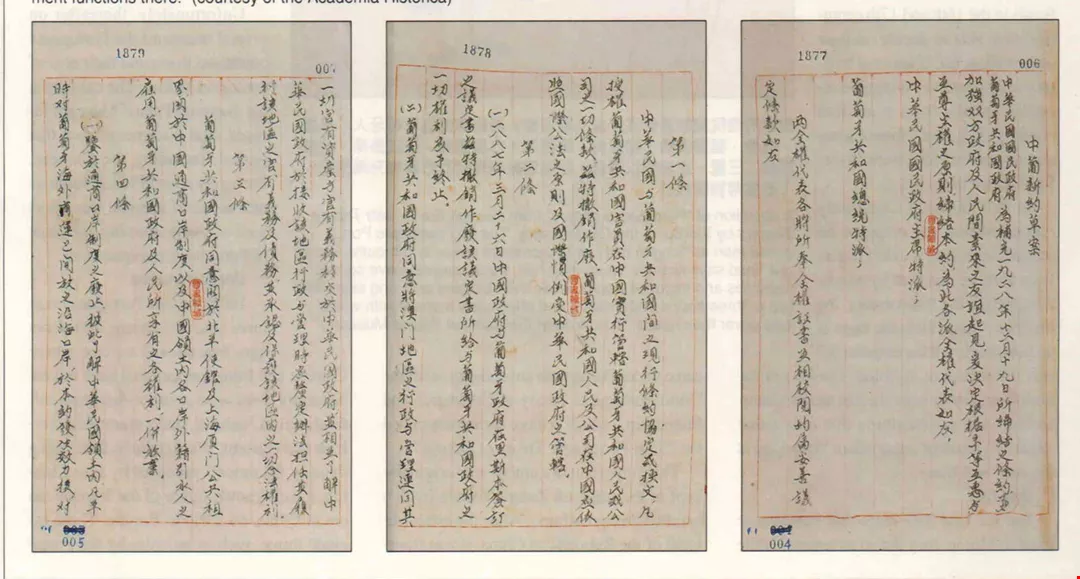 ment functions there. (courtesy of the Academia Historica)
1877
006
中葡新約草案
中華民國國民政府
葡萄牙共和國政府
為補充一九二八年十二月十九日所締結之條約並
加強双方政府及人民間素來之友誼起見,爰決定根據平等互惠与
互尊主權之原則締結本約,為此各派全權代表如左:
中華民國國民政府主席特派:
葡萄牙共和國總統特派:
兩全權代表各將所奉全權証書互相校閱均屬妥善議
定條款如左
004
1878
第一條
中華民國与葡萄牙共和國間之現行條約協定或換文凡
授權葡萄牙共和國官員在中國實行管轄葡萄牙共和國人民或公
司之一切條款,茲特撤銷作廢。葡萄牙共和國人民及公司在中國應依
照國際公法之原則及國際慣例,受中華民國政府之管轄
第二條
(一)一八八七年三月二十六日中國政府与葡萄牙政府在里斯本簽訂
之議定書茲特撤銷作廢該議定書所給与葡萄牙共和國政府之
一切權利應予終止。
(二)葡萄牙共和國政府同意將澳門地區之行政与管理連同其
1879
007
一切官有資產与官有義務移交於中華民國政府並相互了解中
華民國政府於接收該地區行政与管理時應釐定辦法担任並履
行該地區之官有義務及債務並承認及保護該地區內之一切合法權利
第三條
葡萄牙共和國政府同意關於北平使館及上海廈門公共租
界關於中國通商口岸制度以及中國領土內各口岸外籍引水人之
雇用,葡萄牙共和國政府及人民所享有之各權利一併放棄。
第四條
(一)鑒於通商口岸制度之廢止,彼此了解中華民國領土內凡平
時对葡萄牙海外商運已開放之沿海口岸於本約發生效力後对
005